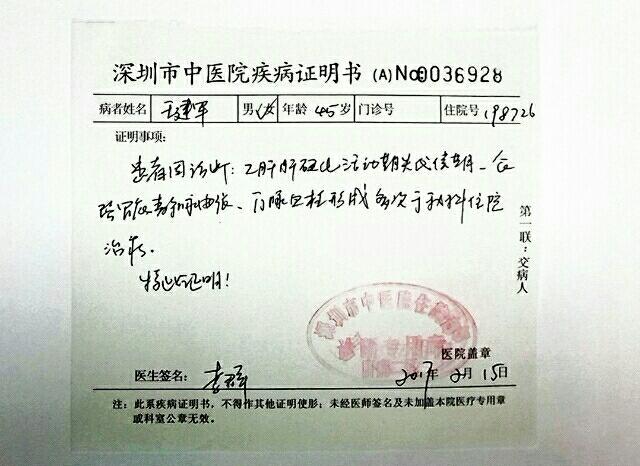 深圳市中医院疾病证明书 (A) No 0036928
病者姓名 建军 男/女 年龄 45 岁 门诊号 住院号 198726
证明事项:
患者因诊断:乙肝肝硬化活动期失代偿期、合
静脉曲张、门脉血栓形成多次于我科住院
治疗。
特此证明!
第一联:交病人
深圳市中医院住院
医院盖章
医生签名: 李 2017年2月15日
注:此系疾病证明书,不得作其他证明使彤;未经医师签名及未加盖本院医疗专用章
或科室公章无效。